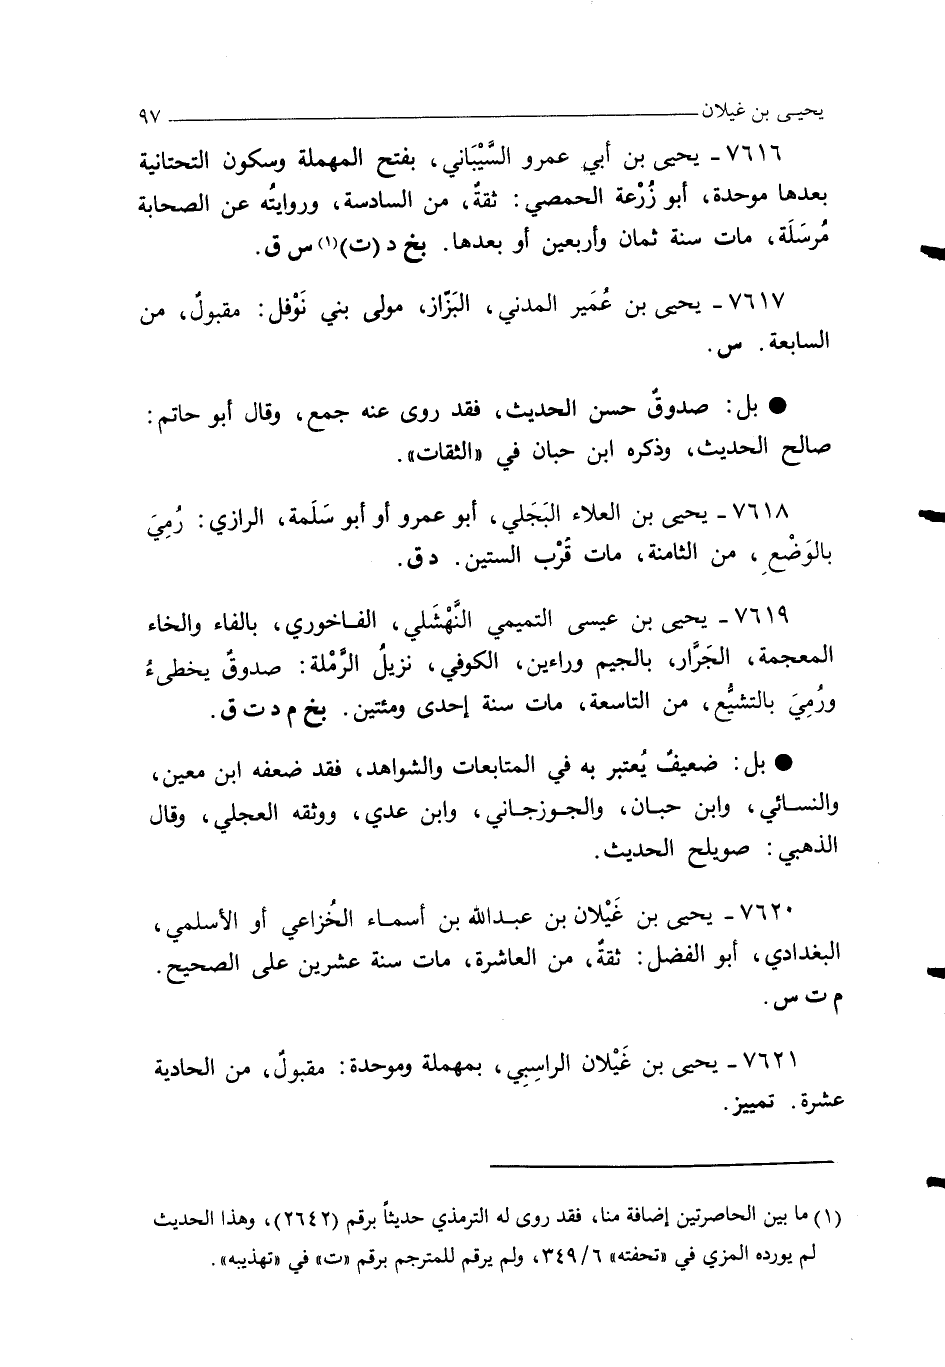 يحيى بن غيلان ٩٧
٧٦١٦ ـ يحيى بن أبي عمرو السَّيْبَاني، بفتح المهملة وسكون التحتانية
بعدها موحدة، أبو زُرْعة الحمصي: ثقةٌ، من السادسة، وروايتُه عن الصحابة
مُرسَلَة، مات سنة ثمان وأربعين أو بعدها. بخ د (ت)(١) س ق.
٧٦١٧ ـ يحيى بن عُمَير المدني، البَزّاز، مولى بني نَوْفل: مقبولٌ، من
السابعة. س.
● بل: صدوقٌ حسن الحديث، فقد روى عنه جمع، وقال أبو حاتم:
صالح الحديث، وذكره ابن حبان في «الثقات».
٧٦١٨ ـ يحيى بن العلاء البَجَلي، أبو عمرو أو أبو سَلَمة، الرازي: رُمِيَ
بالوَضْعِ، من الثامنة، مات قُرْب الستين. د ق.
٧٦١٩ ـ يحيى بن عيسى التميمي النَّهْشَلي، الفاخوري، بالفاء والخاء
المعجمة، الجَرَّار، بالجيم وراءين، الكوفي، نزيلُ الرَّمْلة: صدوقٌ يخطىءُ
ورُمِيَ بالتشيُّع، من التاسعة، مات سنة إحدى ومئتين. بخ م د ت ق.
● بل: ضعيفٌ يُعتبر به في المتابعات والشواهد، فقد ضعفه ابن معين،
والنسائي، وابن حبان، والجوزجاني، وابن عدي، ووثقه العجلي، وقال
الذهبي: صويلح الحديث.
٧٦٢٠ ـ يحيى بن غَيْلان بن عبدالله بن أسماء الخُزاعي أو الأسلمي،
البغدادي، أبو الفضل: ثقةٌ، من العاشرة، مات سنة عشرين على الصحيح.
م ت س.
٧٦٢١ ـ يحيى بن غَيْلان الراسِبِي، بمهملة وموحدة: مقبولٌ، من الحادية
عشرة. تمييز.
(١) ما بين الحاصرتين إضافة منا، فقد روى له الترمذي حديثاً برقم (٢٦٤٢)، وهذا الحديث
لم يورده المزي في «تحفته» ٣٤٩/٦، ولم يرقم للمترجم برقم «ت» في «تهذيبه».